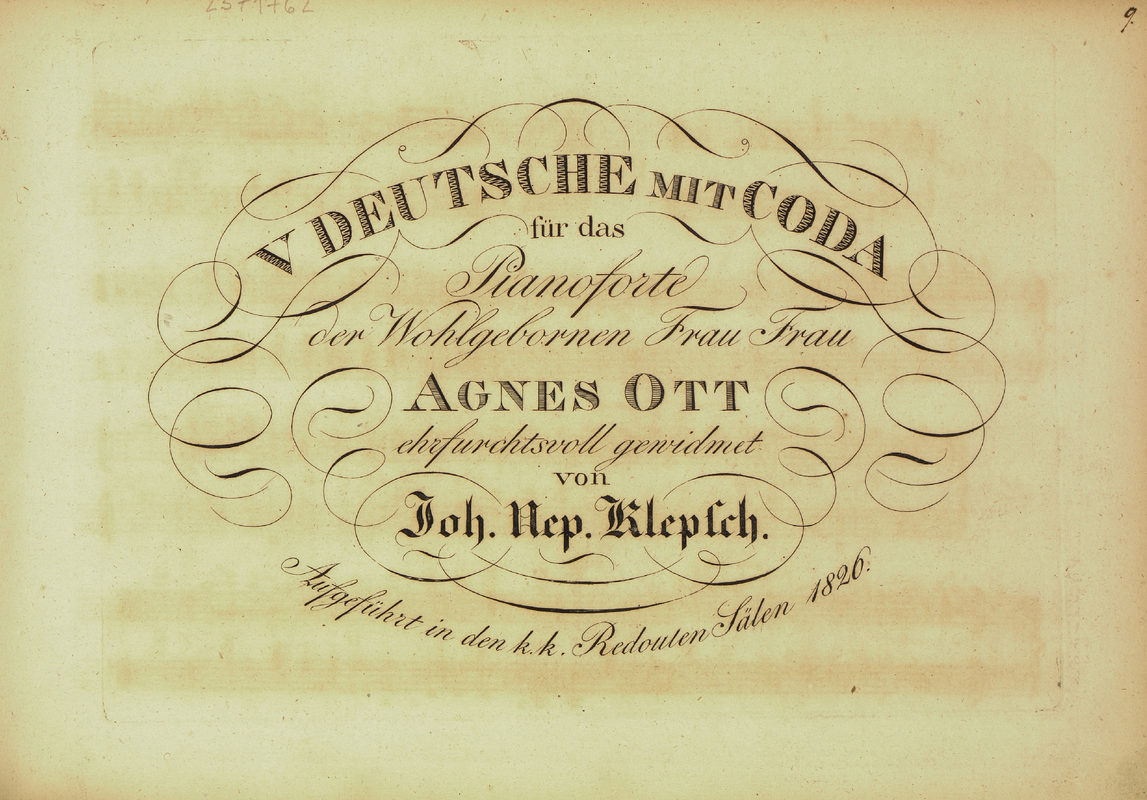 9.
V DEUTSCHE MIT CODA
für das
Pianoforte
der Wohlgebornen Frau Frau
AGNES OTT
ehrfurchtsvoll gewidmet
von
Joh. Nep. Klepsch.
Aufgeführt in den k.k. Redouten Sälen 1826.